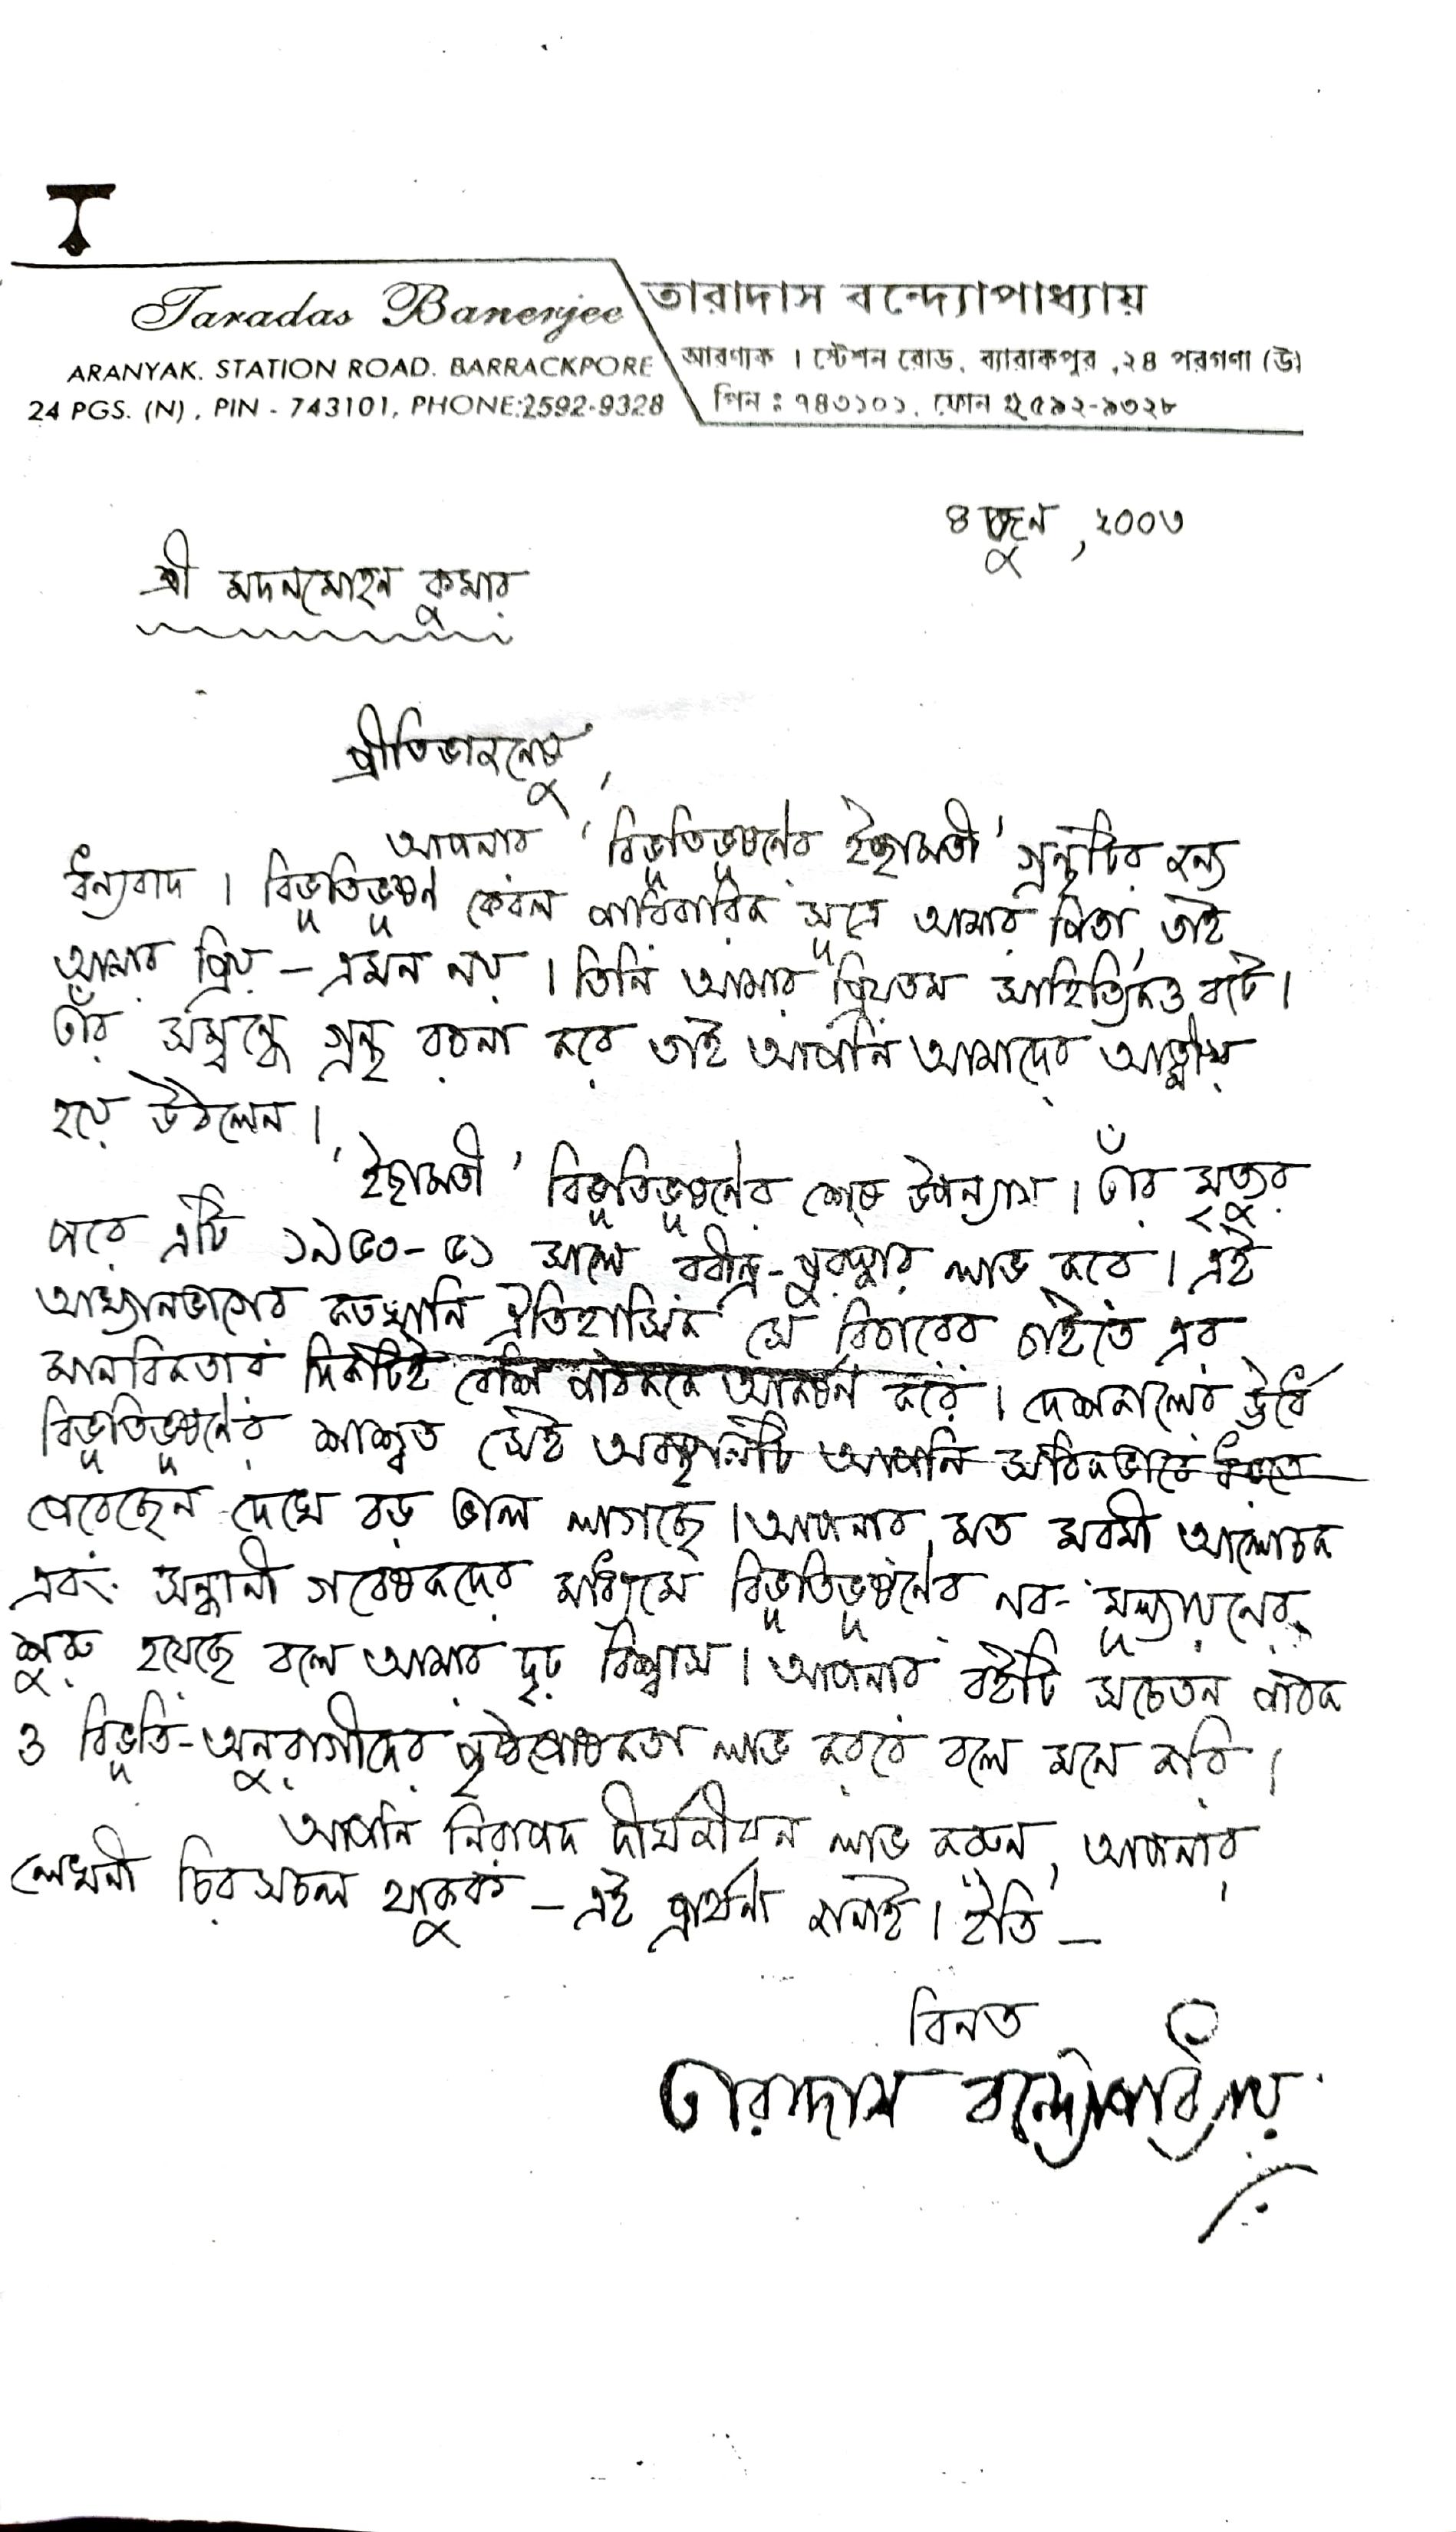 T
Taradas Banerjee
ARANYAK. STATION ROAD. BARRACKPORE
24 PGS. (N), PIN - 743101, PHONE:2592-9328
তারাদাস বন্দ্যোপাধ্যায়
আরণ্যক । স্টেশন রোড, ব্যারাকপুর, ২৪ পরগণা (উঃ)
পিন : ৭৪৩১০১, ফোন : ২৫৯২-৯৩২৮
৪ জুন, ২০০৩
শ্রী মদনমোহন কুমার
প্রীতিভাজনেষু,
আপনার 'বিভূতিভূষণের ইছামতী' গ্রন্থটির জন্য
ধন্যবাদ । বিভূতিভূষণ কেবল পারিবারিক সূত্রে আমার পিতা, তাই
আমার প্রিয় – এমন নয় । তিনি আমার প্রিয়তম সাহিত্যিকও বটে ।
তাঁর সম্বন্ধে গ্রন্থ রচনা করে তাই আপনি আমাদের আত্মীয়
হয়ে উঠলেন ।
'ইছামতী' বিভূতিভূষণের শেষ উপন্যাস । তাঁর মৃত্যুর
পরে এটি ১৯৫০-৫১ সালে রবীন্দ্র-পুরস্কার লাভ করে । এই
আখ্যানভাগের কতখানি ঐতিহাসিক সে বিচারের চাইতে এর
মানবিকতার দিকটিই বেশি পাঠককে আকর্ষণ করে । দেশকালের ঊর্ধে
বিভূতিভূষণের শাশ্বত সেই অবস্থানটি আপনি সঠিকভাবে ধরতে
পেরেছেন দেখে বড় ভাল লাগছে । আপনার মত মরমী আলোচক
এবং সন্ধানী গবেষকদের মাধ্যমে বিভূতিভূষণের নব-মূল্যায়নের
শুরু হয়েছে বলে আমার দৃঢ় বিশ্বাস । আপনার বইটি সচেতন পাঠক
ও বিভূতি-অনুরাগীদের পৃষ্ঠপোষকতা লাভ করবে বলে মনে করি ।
আপনি নিরাপদ দীর্ঘজীবন লাভ করুন, আপনার
লেখনী চিরসচল থাকুক – এই প্রার্থনা জানাই । ইতি –
বিনত
তারাদাস বন্দ্যোপাধ্যায়